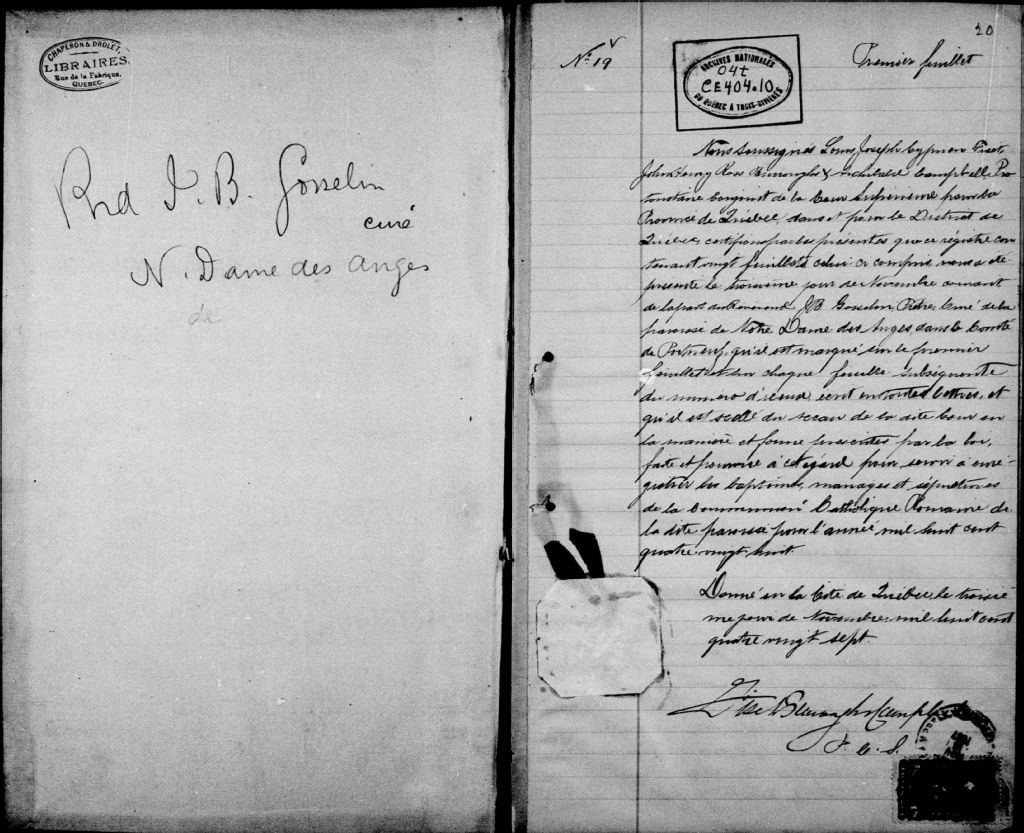 CHAPERON & DROLET,
LIBRAIRES.
Rue de la Fabrique,
QUEBEC.
Rvd J. B. Gosselin
curé
N. Dame des Anges
de
20
No 19
Premier feuillet
ARCHIVES NATIONALES
04t
CE404.10
DU QUÉBEC À TROIS-RIVIÈRES
Nous soussignés Louis Joseph Cyprien Fiset
John Henry Ross Burroughs & Archibald Campbell, Pro
tonotaire conjoint de la Cour Supérieure pour la
Province de Québec, dans et pour le District de
Québec, certifions par les présentes que ce régistre con
tenant vingt feuillets celui ci compris nous a été
présenté le troisième jour de Novembre courant
de la part du Révérend J B Gosselin, Prêtre, Curé de la
paroisse de Notre Dame des Anges, dans le Comté
de Portneuf, qu'il est marqué sur le premier
feuillet et sur chaque feuille subséquente
du numéro d'iceux écrit en toutes lettres, et
qu'il est scellé du sceau de la dite Cour en
la manière et forme prescrites par la loi,
faite et pourvue à cet égard pour servir à enré-
gistrer les baptêmes, mariages et sépultures
de la Communion Catholique Romaine de
la dite paroisse pour l'année mil huit cent
quatre vingt huit.
Donné en la Cité de Québec, le troisiè
me jour de Novembre mil huit cent
quatre vingt sept.
Fiset Burroughs Campbell
P. C. S.